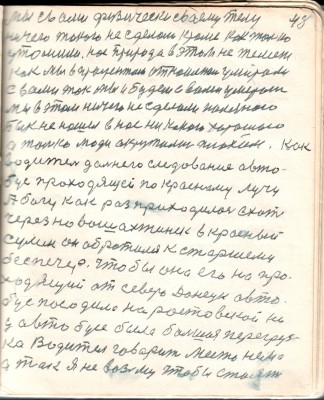 48
мы с вами физически своему телу
ничего такого не сделаем кроме как только
утомили. нас природа в этом не
как мы в
с вами так мы и будем с вами
мы в этом ничего не сделали полезного
так не нашли в нас никакого хорошего
а только люди окружили плохим. Как
водится дальнего следование авто-
бус проходящей по Красному Лучу
Я богу как раз приходилося ехать
через новошахтинск в Красный
сулин он обратился к старшему
диспечер. Чтобы она его на про-
ходящий от северо Донецк авто-
бус посодила на ростовской но
у автобусе была большая перегруз-
ка Водител говорит место нема
а так я не возьму чтобы стоять